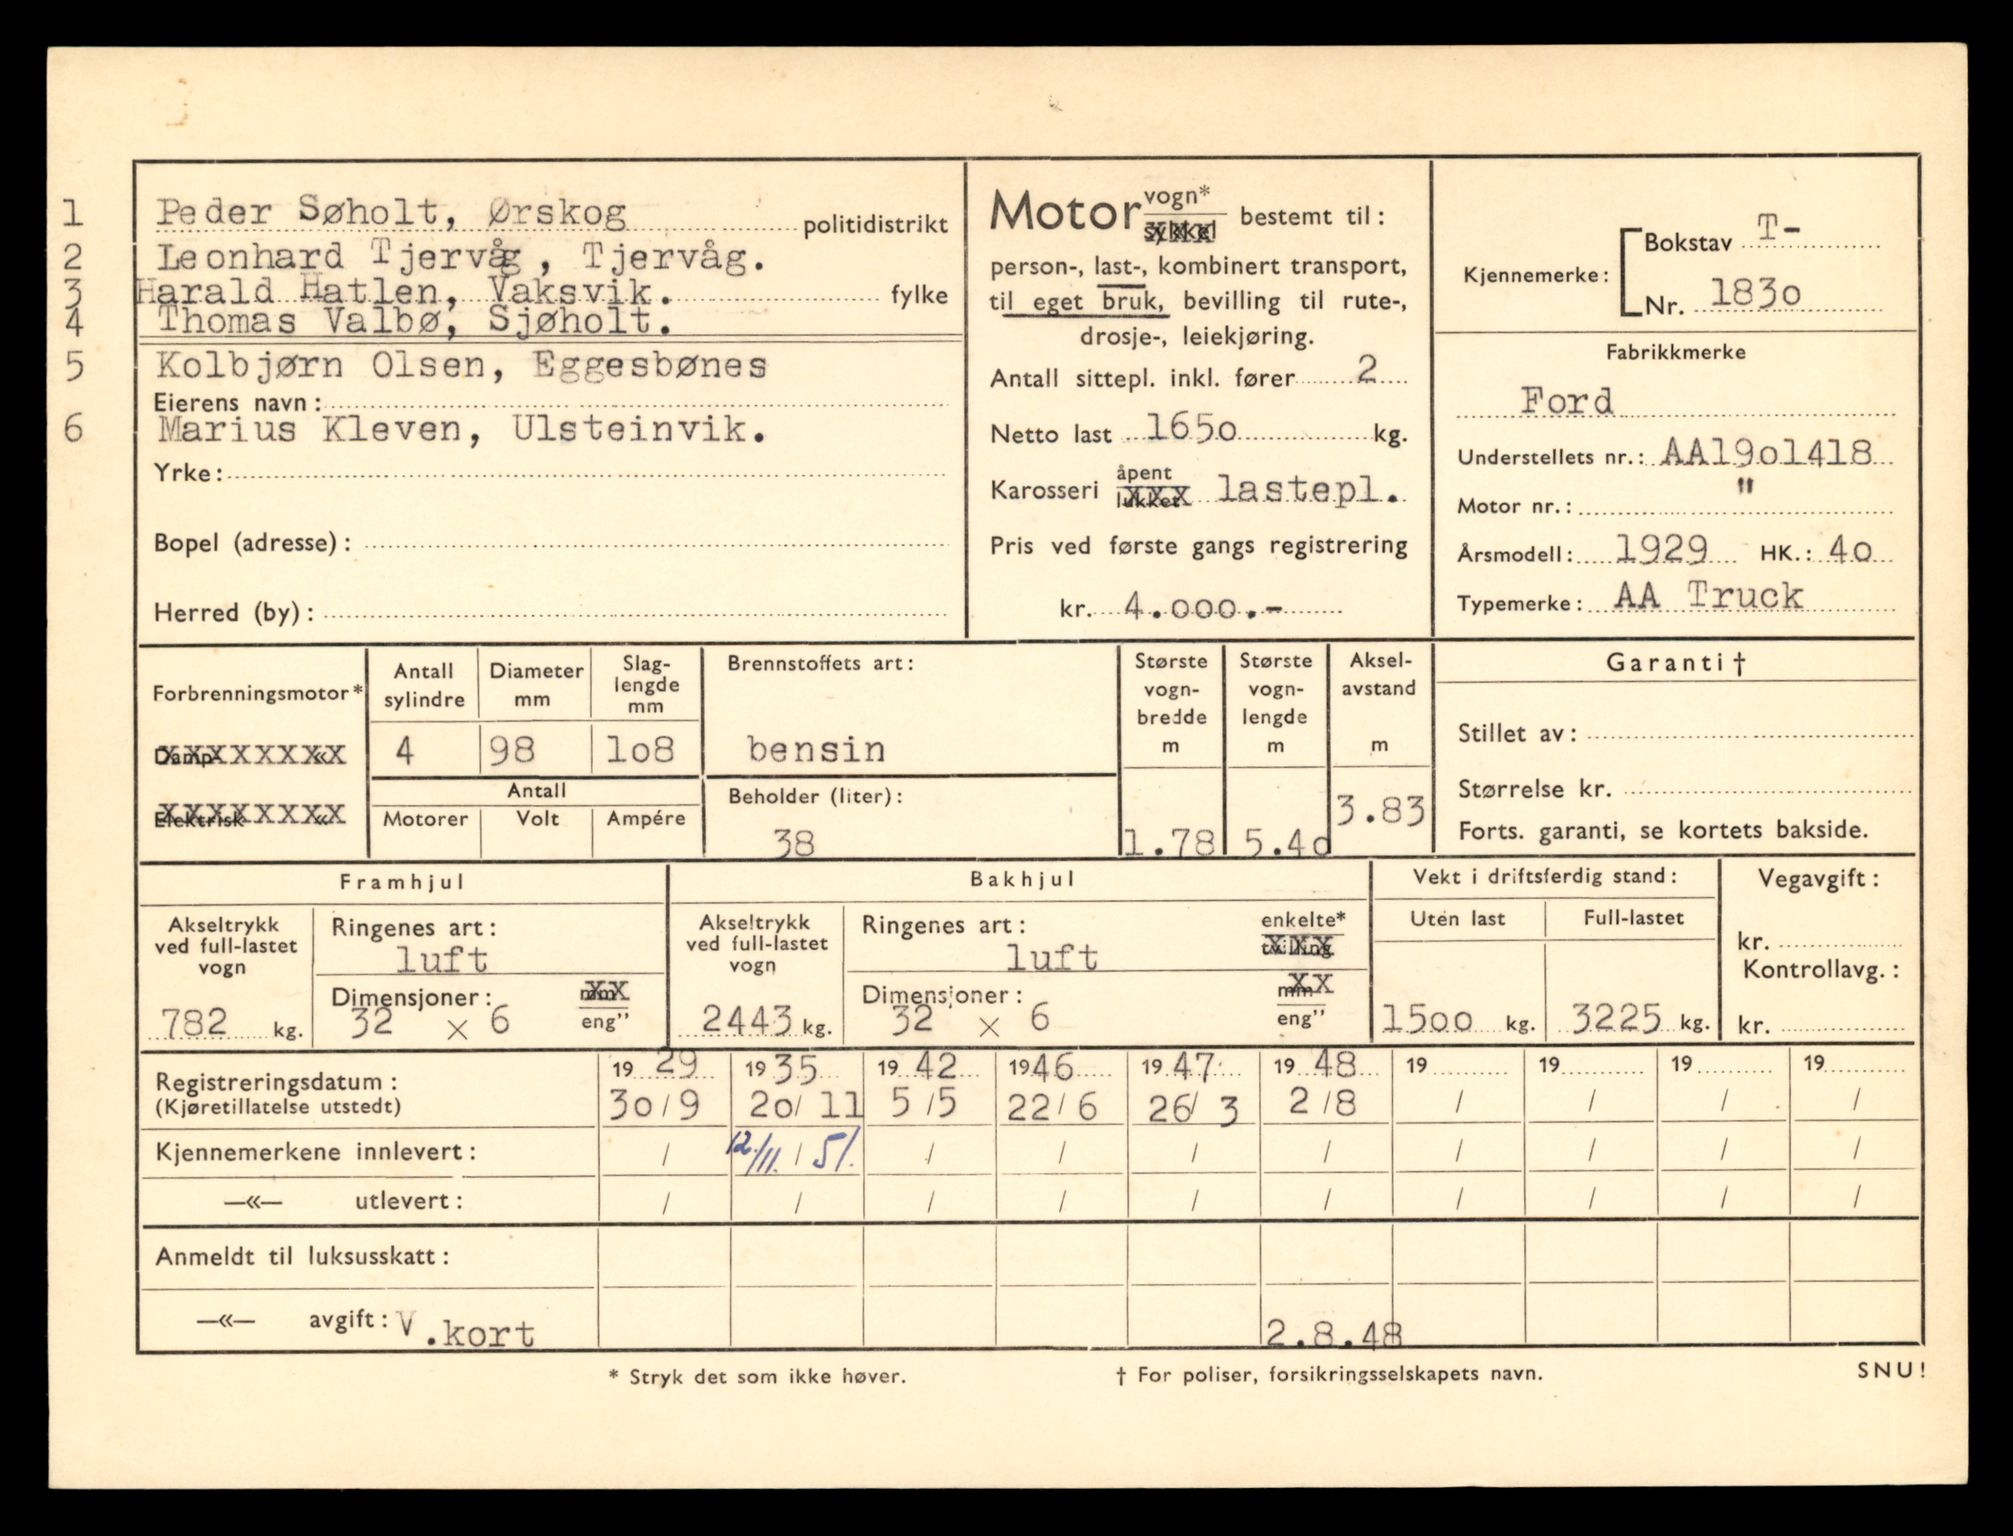 1 Peder Søholt, Ørskog politidistrikt
2 Leonhard Tjervåg, Tjervåg.
3 Harald Hatlen, Vaksvik. fylke
4 Thomas Valbø, Sjøholt.
5 Kolbjørn Olsen, Eggesbønes
Eierens navn:
6 Marius Kleven, Ulsteinvik.
Yrke:
Bopel (adresse):
Herred (by):
Motor vogn* sykkel bestemt til:
person-, last-, kombinert transport,
til eget bruk, bevilling til rute-,
drosje-, leiekjøring.
Antall sittepl. inkl. fører 2
Netto last 1650 kg.
Karosseri åpent lukket lastepl.
Pris ved første gangs registrering
kr. 4.000.-
Kjennemerke: Bokstav T-
Nr. 1830
Fabrikkmerke
Ford
Understellets nr.: AA19o1418
Motor nr.: "
Årsmodell: 1929 HK.: 4o
Typemerke: AA Truck
Forbrenningsmotor*
Damp «
Elektrisk «
Antall sylindre
4
Diameter mm
98
Slag-
lengde
mm
1o8
Antall
Motorer Volt Ampére
Brennstoffets art:
bensin
Beholder (liter):
38
Største
vogn-
bredde
m
1.78
Største
vogn-
lengde
m
5.4o
Aksel-
avstand
m
3.83
Garanti †
Stillet av:
Størrelse kr.
Forts. garanti, se kortets bakside.
Framhjul
Akseltrykk
ved full-lastet
vogn
782 kg.
Ringenes art:
luft
Dimensjoner: mm
32 x 6 eng"
Bakhjul
Akseltrykk
ved full-lastet
vogn
2443 kg.
Ringenes art: enkelte*
luft tvilling
Dimensjoner: mm
32 x 6 eng"
Vekt i driftsferdig stand:
Uten last Full-lastet
15oo kg. 3225 kg.
Vegavgift:
kr.
Kontrollavg.:
kr.
19 29 19 35 19 42 19 46 19 47 19 48 19 19 19 19
Registreringsdatum:
(Kjøretillatelse utstedt) 3o/9 2o/11 5/5 22/6 26/3 2/8 / / / /
Kjennemerkene innlevert: / 12./11. / 51. / / / / / / / /
—«— utlevert: / / / / / / / / / /
Anmeldt til luksusskatt:
—«— avgift: V.kort 2.8.48
* Stryk det som ikke høver. † For poliser, forsikringsselskapets navn. SNU!